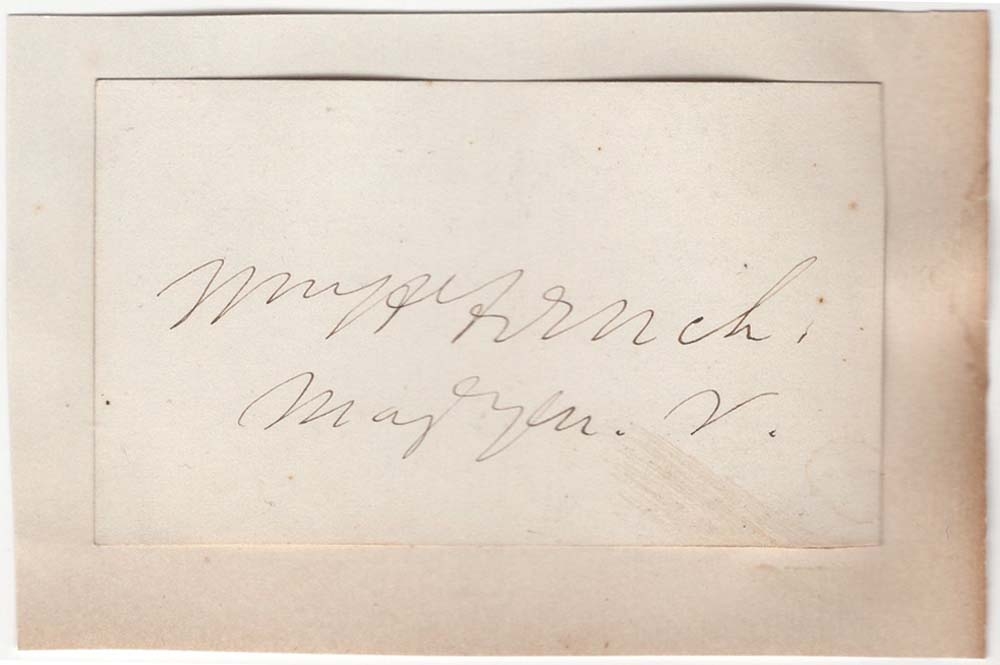 Wm H French.
Maj Gen. V.